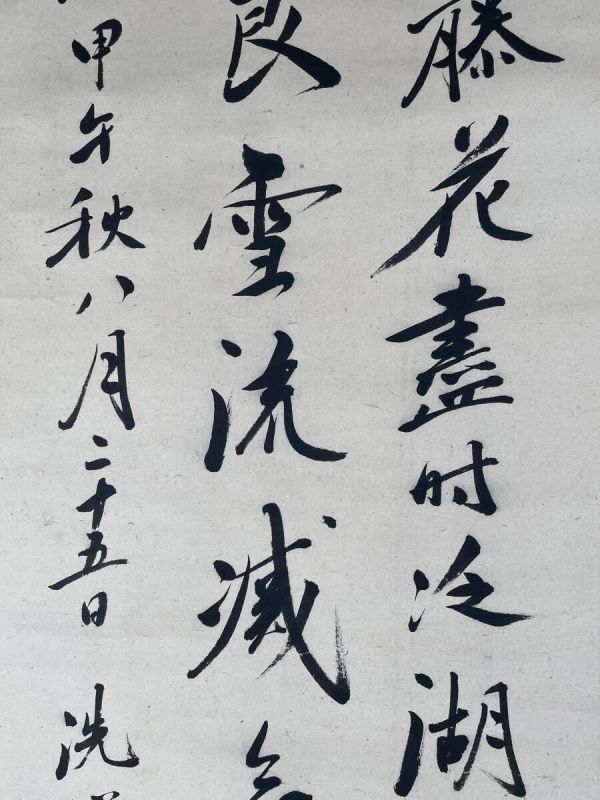 藤花盡时泛湖
良雪流減氣
甲午秋八月二十五日 洗